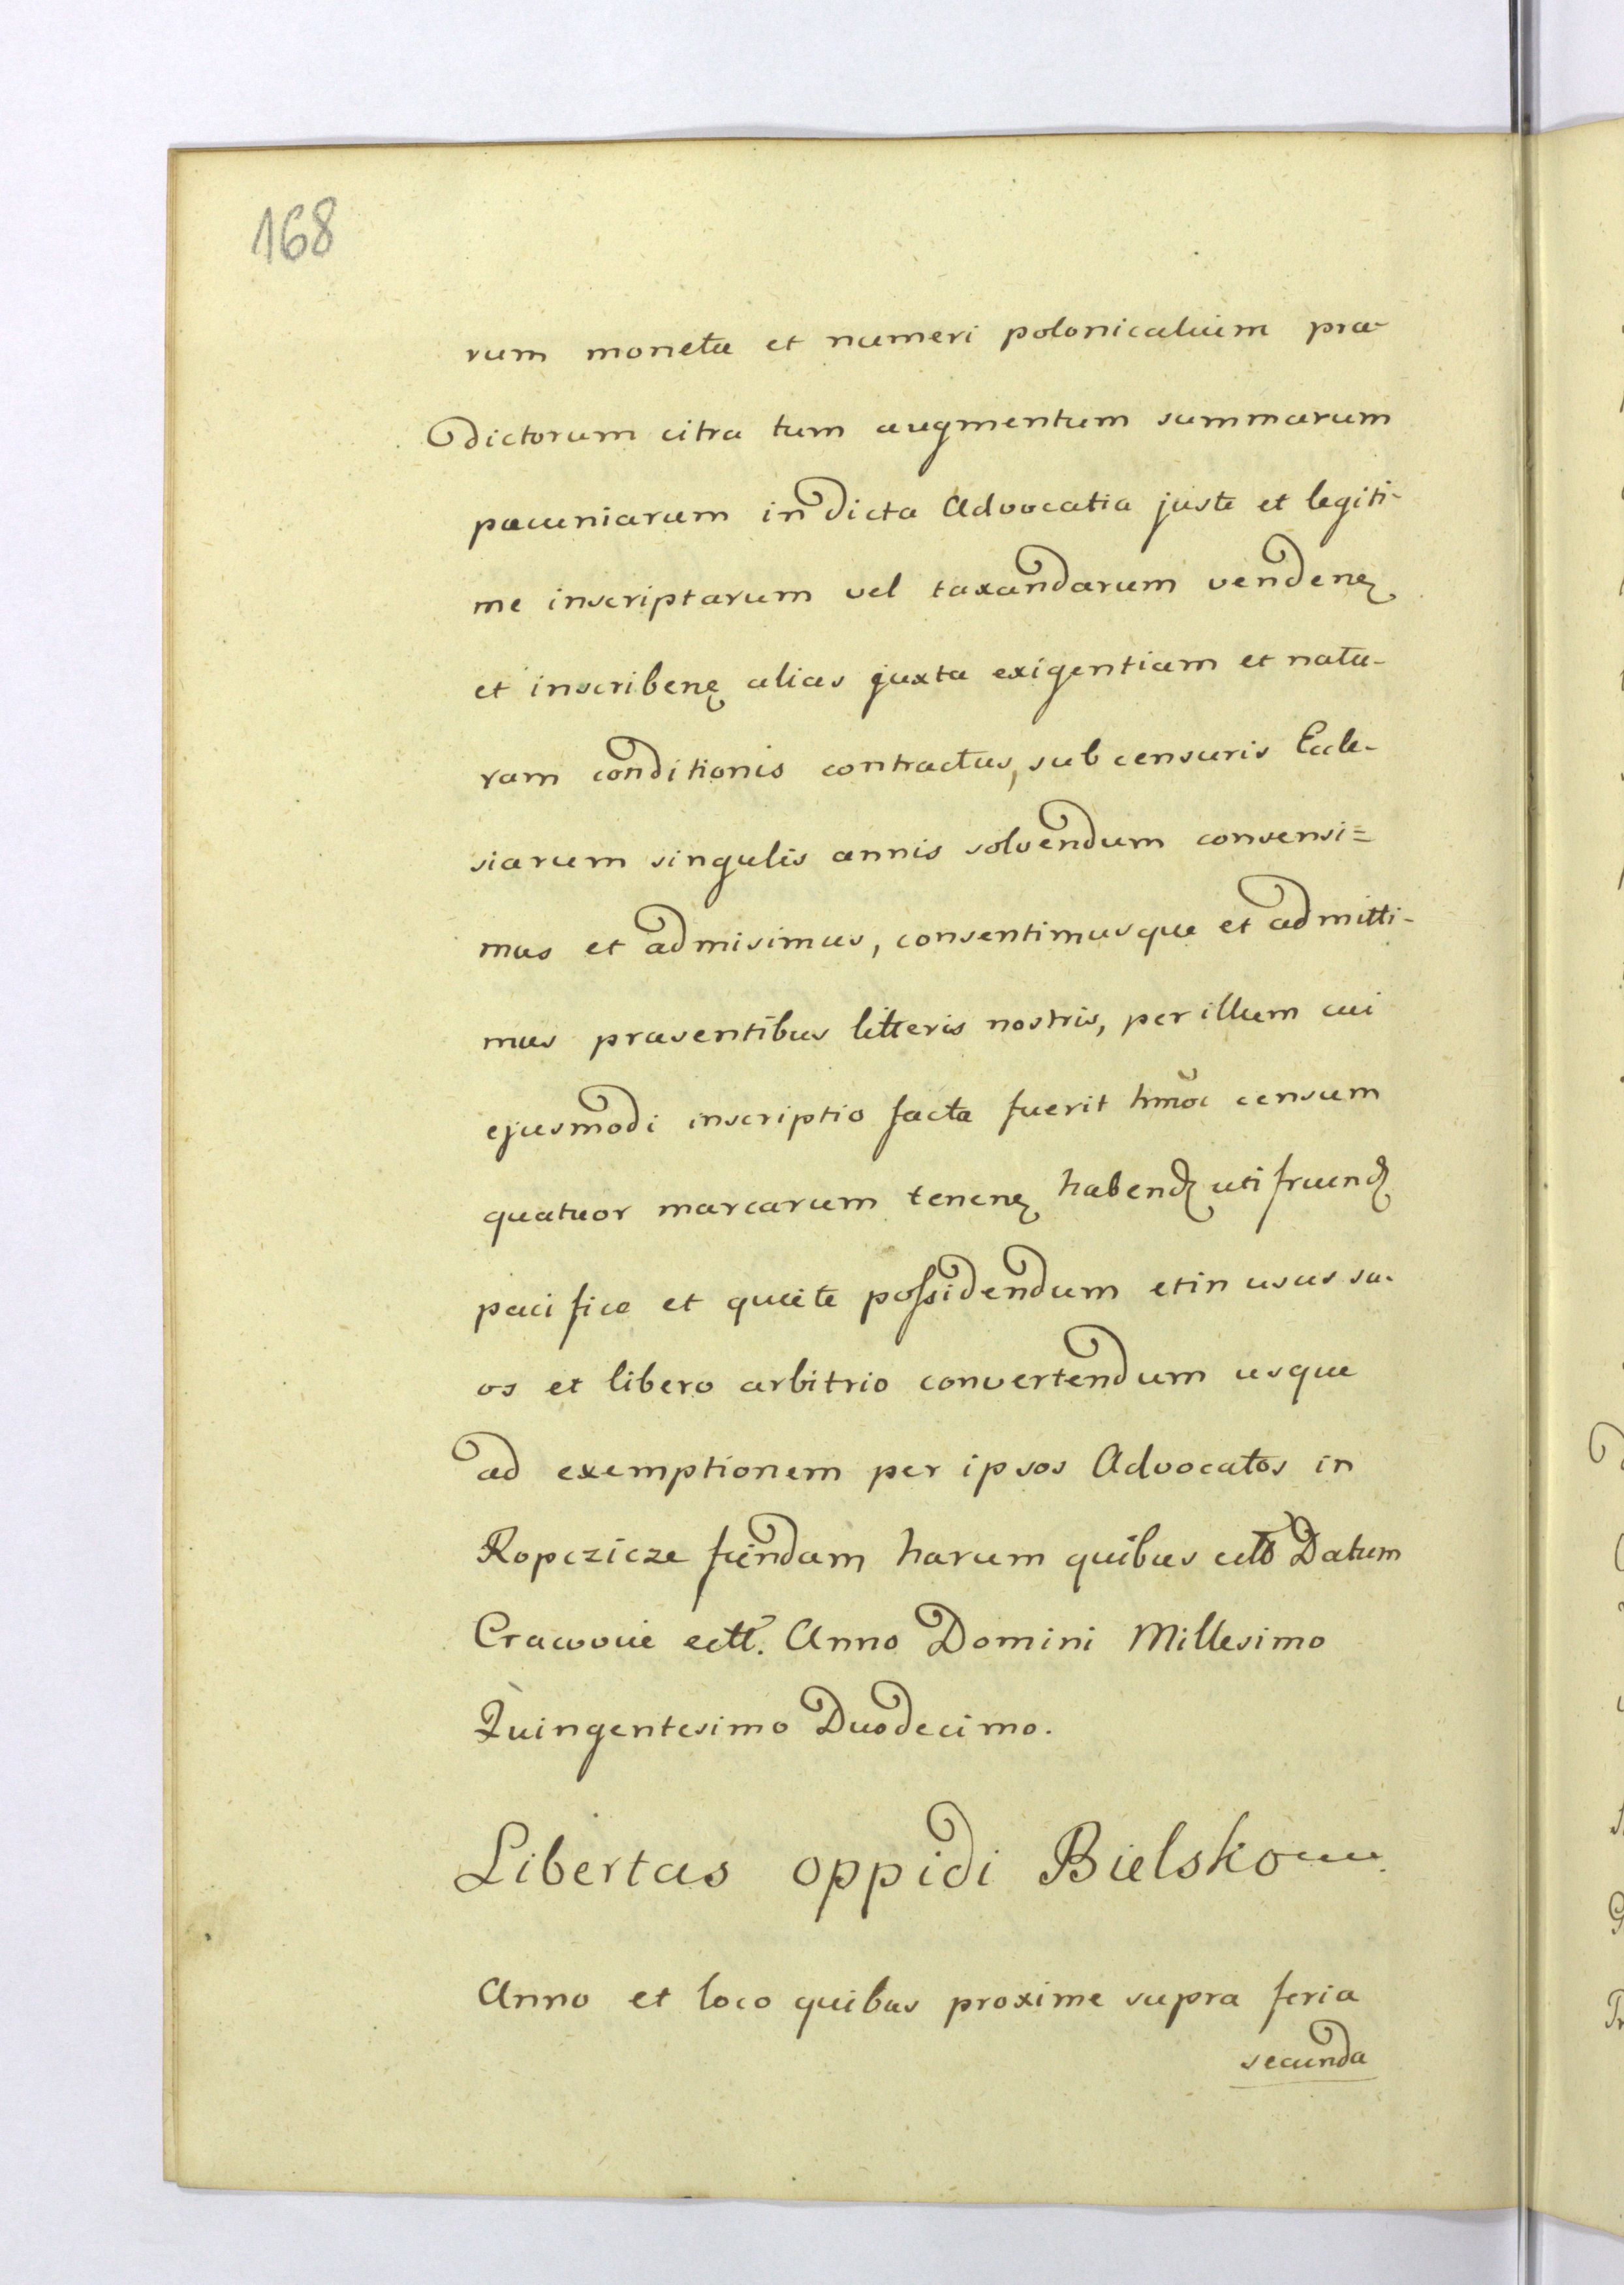 168
rum monetæ et numeri polonicalium præ-
dictorum citra tum augmentum summarum
pæcuniarum in dicta Advocatia juste et legiti-
me inscriptarum vel taxandarum vendenȩ
et inscribenȩ alias juxta exigentiam et natu-
ram conditionis contractus, sub censuris Eccle-
siarum singulis annis solvendum consensi=
mus et admisimus, consentimusque et admitti-
mus præsentibus litteris nostris, per illum cui
ejusmodi inscriptio facta fuerit hmõi censum
quatuor marcarum tenenȩ habend utifruend
pacifice et quiete possidendum et in usus su-
os et libero arbitrio convertendum usque
ad exemptionem per ipsos Advocatos in
Ropczicze fiendam harum quibus ectt Datum
Cracovie ectt. Anno Domini Millesimo
Quingentesimo Duodecimo.
Libertas oppidi Bielsko
Anno et loco quibus proxime supra feria
secunda